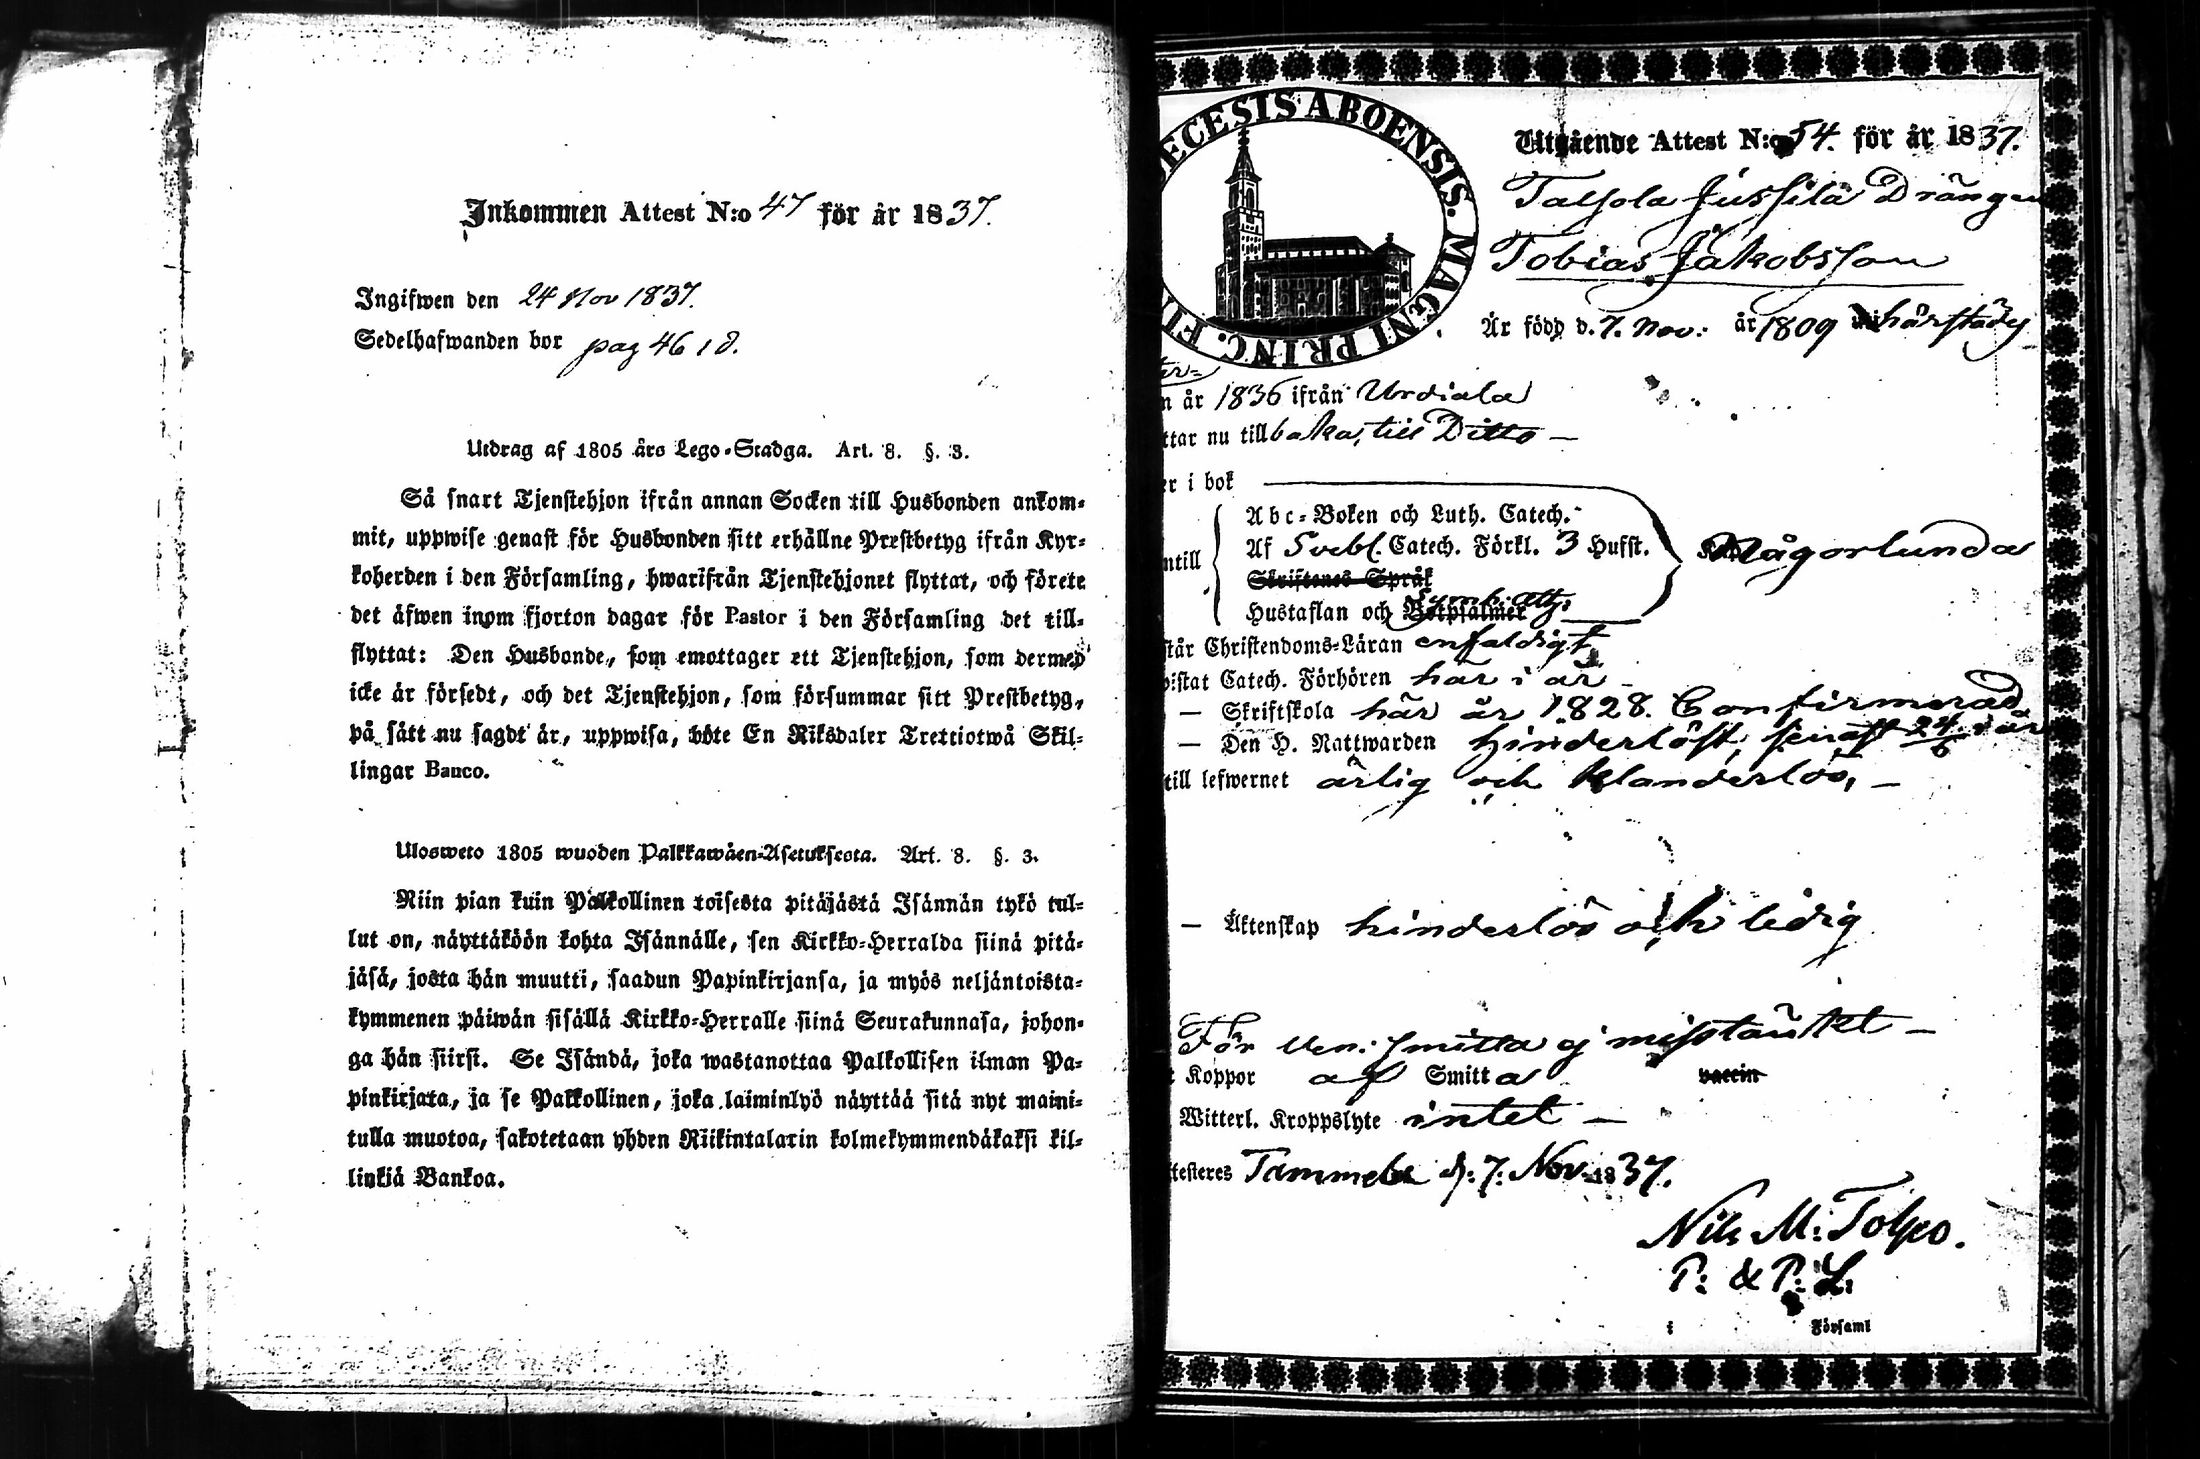 Inkommen Attest N:o 47 för år 1837.
Ingifwen den 24 Nov 1837.
Sedelhafwanden bor pag 461 8.
Utdrag af 1805 års Lego-Stadga. Art. 8. §. 3.
Så snart Tjenstehjon ifrån annan Socken till Husbonden ankom-
mit, uppwise genast för Husbonden sitt erhållne Prestbetyg ifrån Kyr-
koherden i den Församling, hwarifrån Tjenstehjonet flyttat, och förete
det äfwen inom fjorton dagar för Pastor i den Församling det till-
flyttat: Den Husbonde, som emottager ett Tjenstehjon, som dermed
icke är försedt, och det Tjenstehjon, som försummar sitt Prestbetyg,
på sätt nu sagdt är, uppwisa, böte En Riksdaler Trettiotwå Skil-
lingar Banco.
Ulosweto 1805 wuoden Palkkawäen-Asetuksesta. Art. 8. §. 3.
Niin pian kuin Palkollinen toisesta pitäjästä Isännän tykö tul-
lut on, näyttäköön kohta Isännälle, sen Kirkko-Herralda siinä pitä-
jäsä, josta hän muutti, saadun Papinkirjansa, ja myös neljäntoista-
kymmenen päiwän sisällä Kirkko-Herralle siinä Seurakunnasa, johon-
ga hän siirsi. Se Isändä, joka wastanottaa Palkollisen ilman Pa-
pinkirjata, ja se Palkollinen, joka laiminlyö näyttää sitä nyt maini-
tulla muotoa, sakotetaan yhden Riikintalarin kolmekymmendäkaksi kil-
linkiä Bankoa.
ECESIS ABOENSIS. MAGNI PRINC. FI
Utgående Attest N:o 54. för år 1837.
Talsola Jussila Drängen
Tobias Jakobsson
Är född d. 7. Nov: år 1809 härstädes
n år 1836 ifrån Urdiala
ttar nu tillbaka, till Ditto —
er i bok
Abc-Boken och Luth. Catech.
Af Svebl. Catech. Förkl. 3 Hufst.
ntill
Någorlunda
Skriftenes Språk
Hustaflan och Botpsalmer Symb. Ath.
står Christendoms-Läran enfaldigt
vistat Catech. Förhören här i år
— Skriftskola här år 1828. Confirmerad
— Den H. Nattwarden hinderlöst, senast 24/6 i år
till lefwernet ärlig och klanderlös, —
— Äktenskap hinderlös och ledig
För Ven: smitta ej misstänkt —
Koppor af Smitta vaccin
Witterl. Kroppslyte intet —
testeres Tammela d: 7: Nov. 1837.
Nils M: Tolpo.
P: & P: L:
i Församl